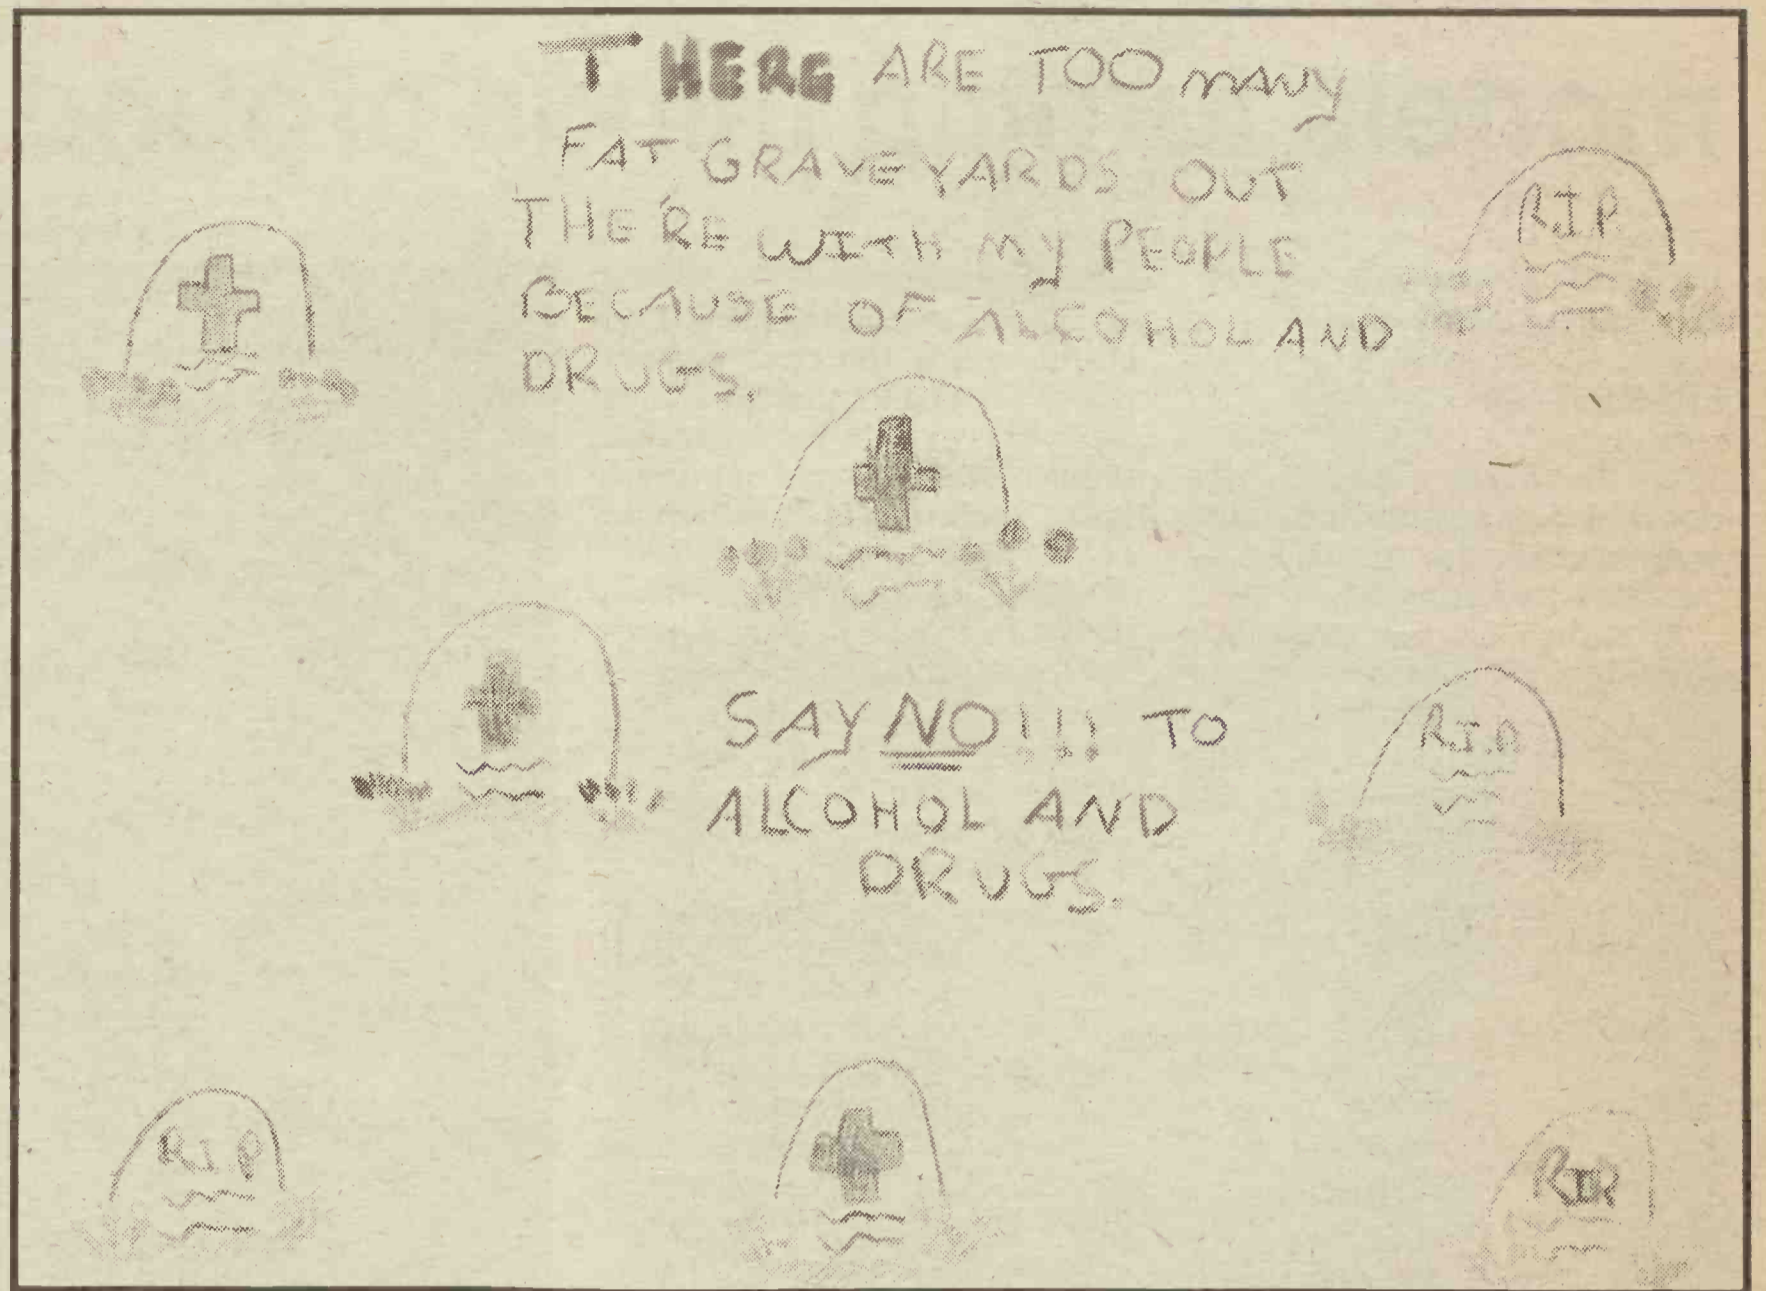 THERE ARE TOO MANY
FAT GRAVEYARDS OUT
THERE WITH MY PEOPLE
BECAUSE OF ALCOHOL AND
DRUGS.
R.I.P.
SAY NO!!! TO
ALCOHOL AND
DRUGS.
R.I.P
R.I.P
R.I.P